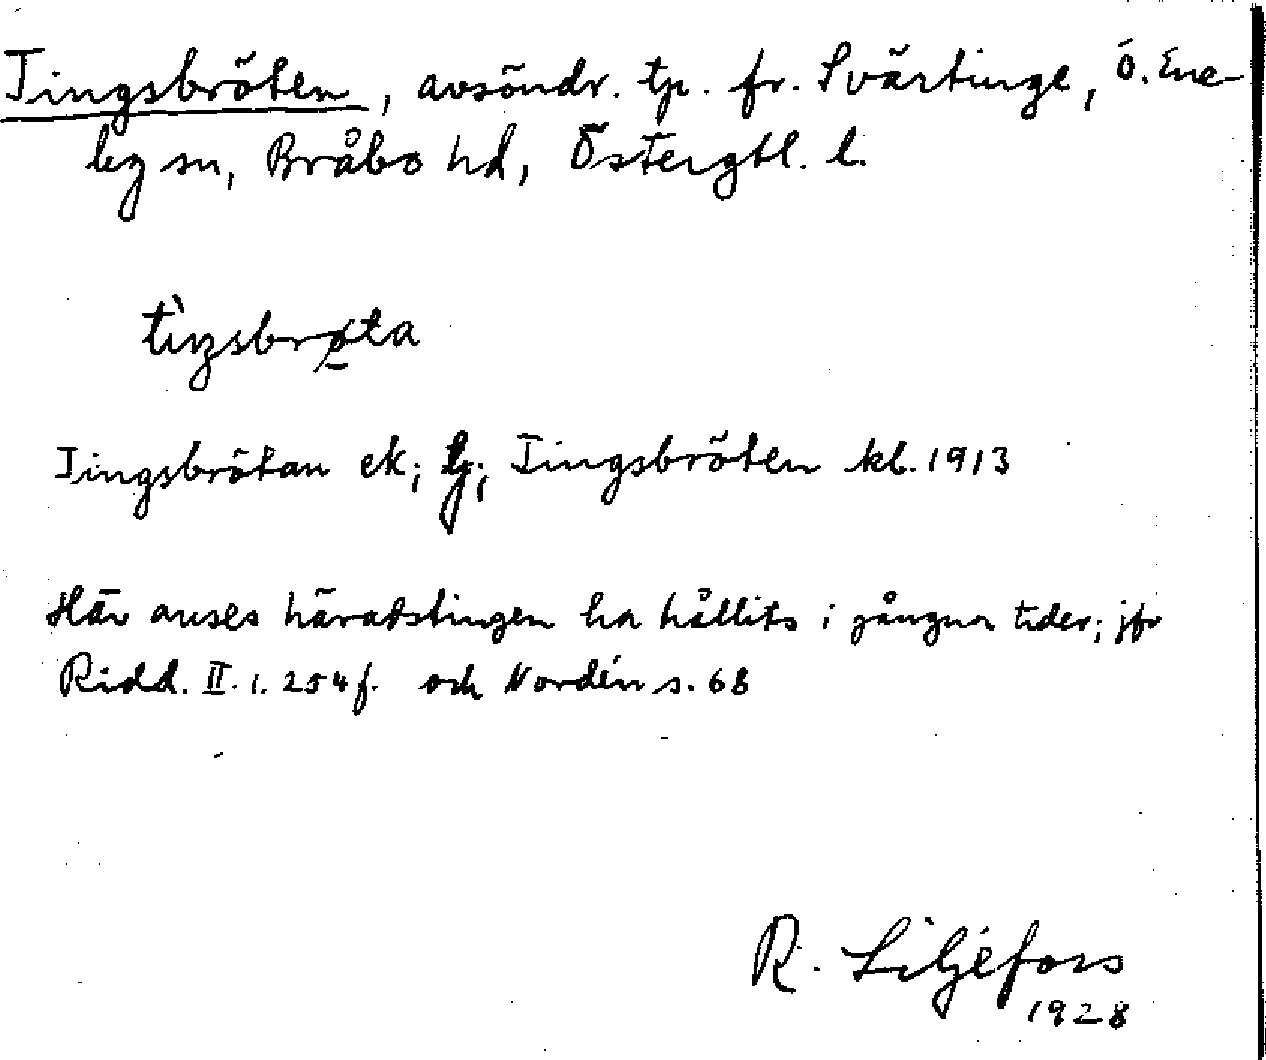 Tingsbröten, avsöndr. tp. fr. Svärtinge, Ö. Ene-
by sn, Bråbo hd, Östergtl. l.
tìŋsbrø̱ta
Tingsbrötan ek; Tingsbröten kb. 1913
Här anses häradstingen ha hållits i gångna tider; jfr
Ridd. II. 1. 254 f. och Nordén s. 68
R. Liljefors
1928